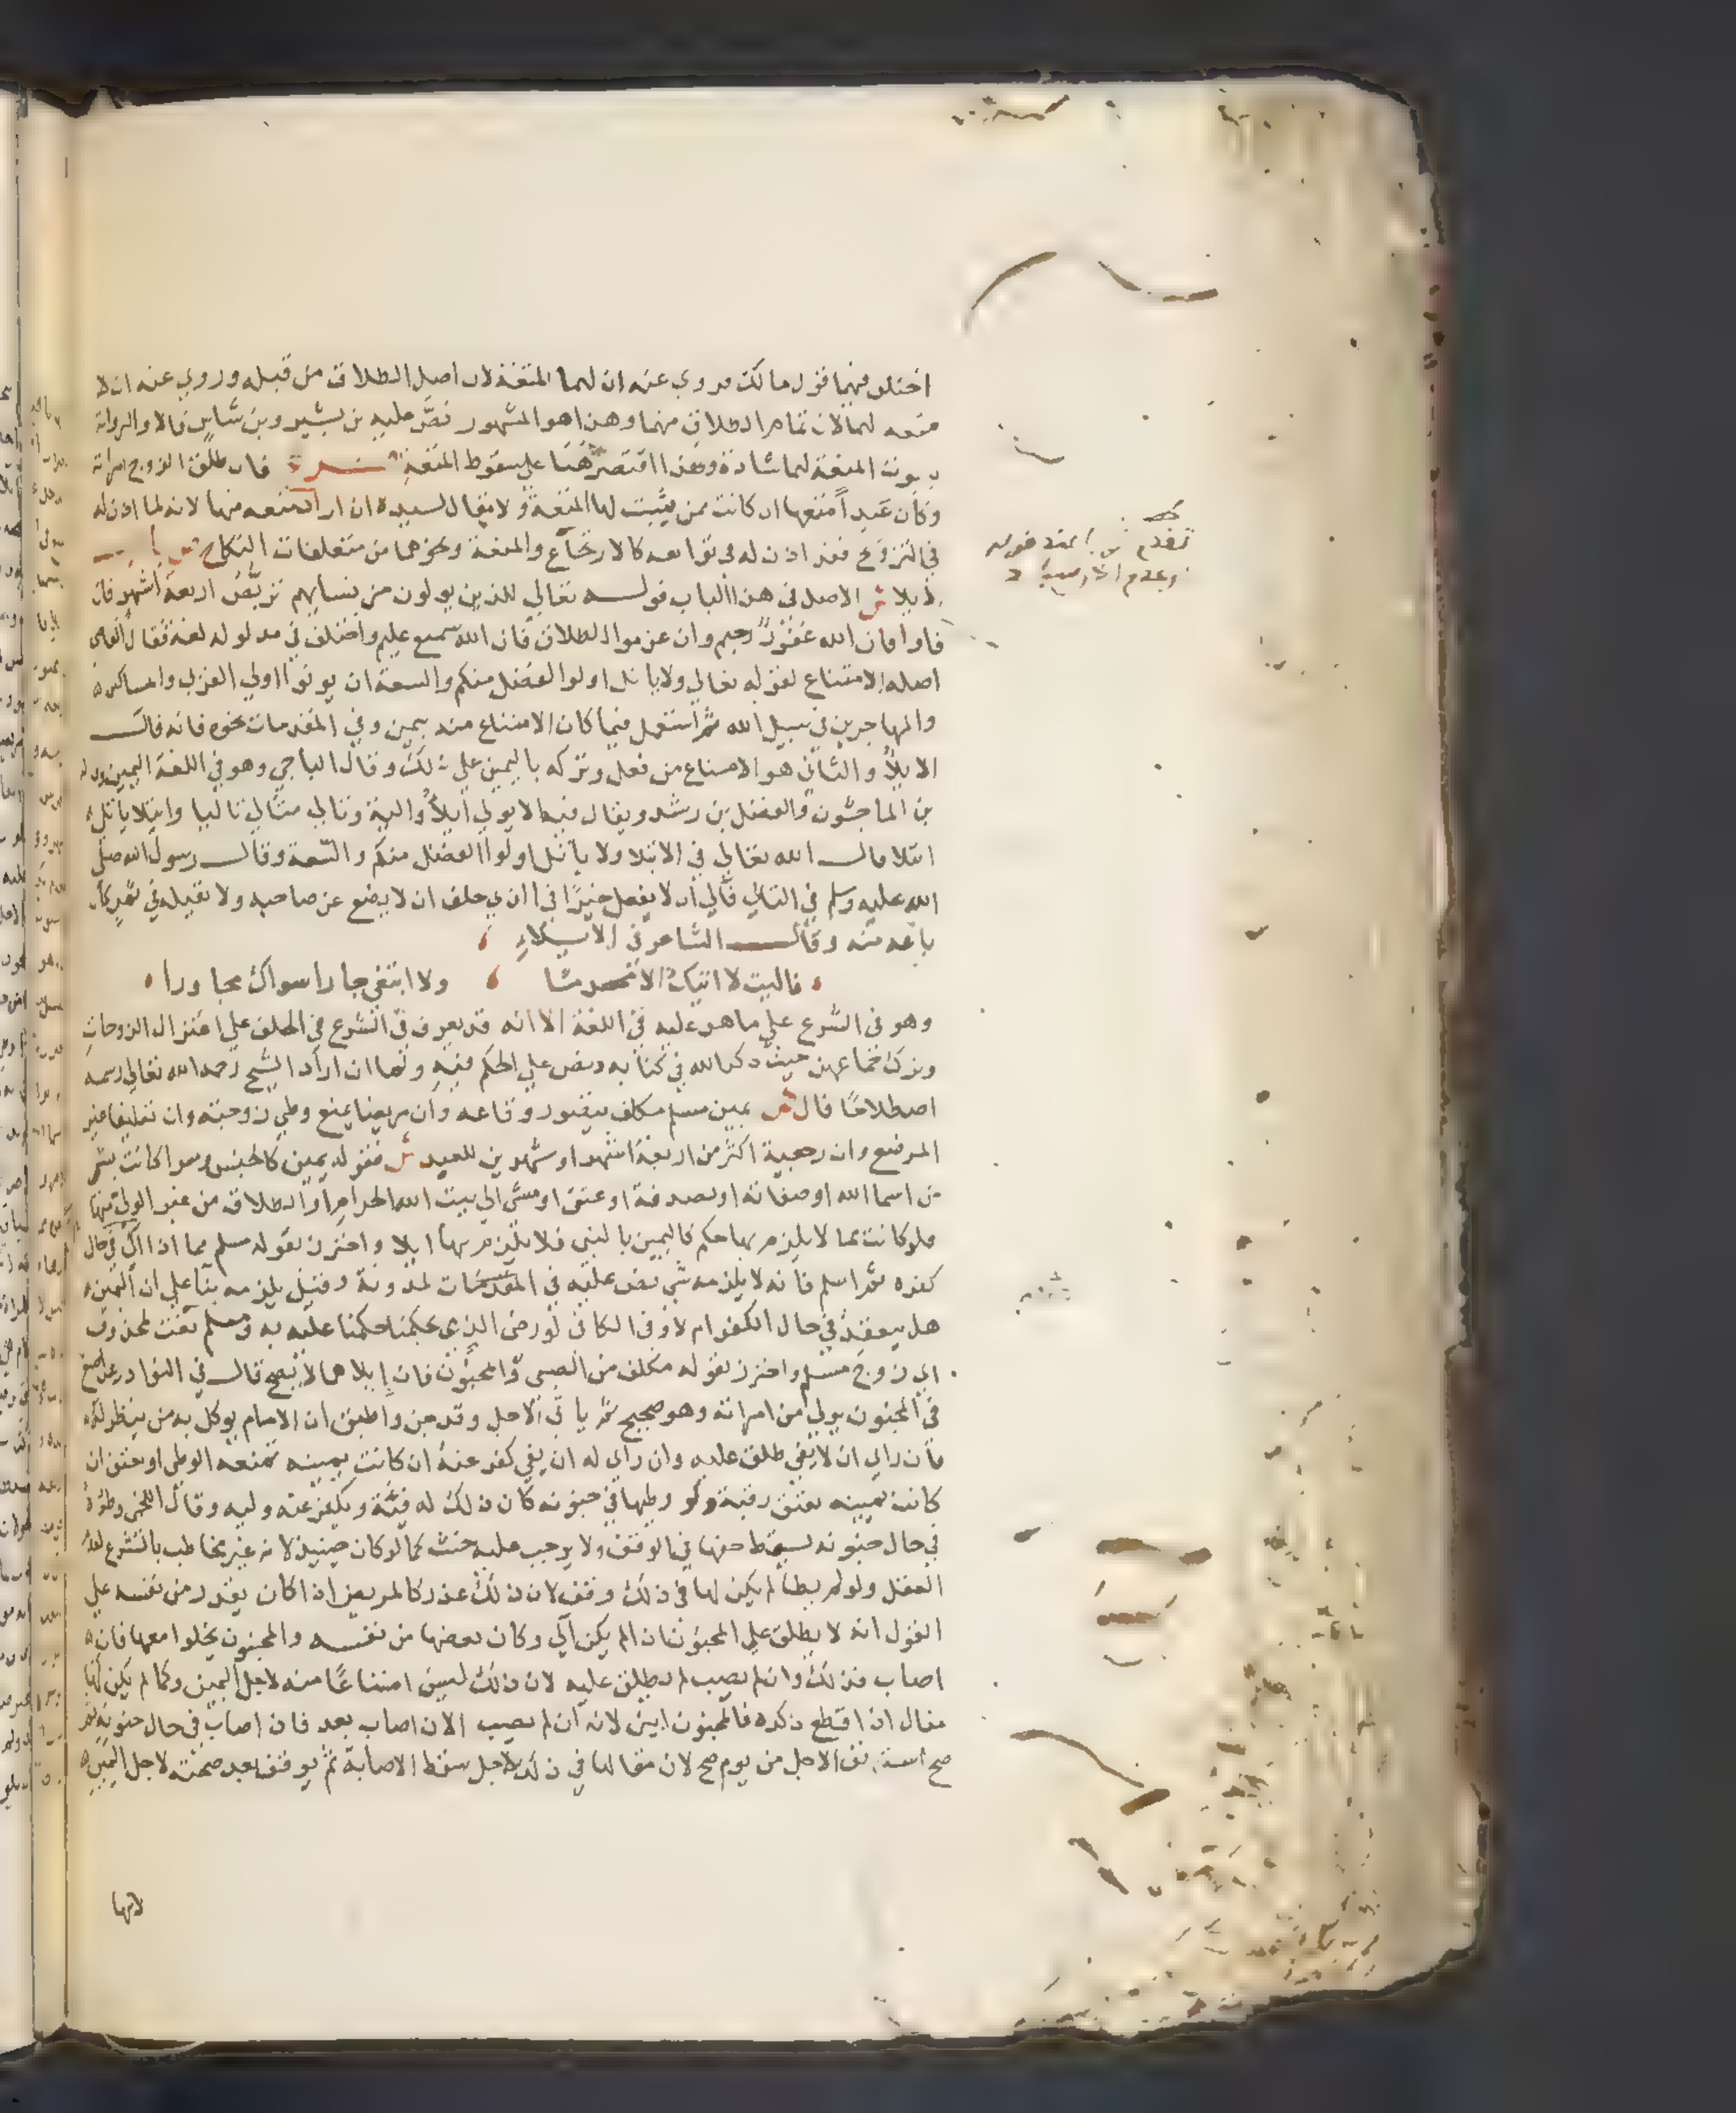 اختلف فيها قول مالك فروي عنه ان لها المتعة لان اصل الطلاق من قبله وروي عنه ان لا
متعه لها لان تمام الطلاق منها وهذا هو المشهور نص عليه بن بشير وبن شاس قالا والرواية
بثبوت المتعة لها شاذة وهذا اقتصر هنا علي سقوط المتعة فان طلق الزوج امراته
وكان عبدا متعها ان كانت ممن يثبت لها المتعة ولا يقال لسيده ان اراد منعه منها لانه لما اذن له
في التزويج فقد اذن له في توابعه كالارتجاع والمتعة ونحوهما من متعلقات النكاح
الايلا ش الاصل في هذا الباب قولـــه تعالي للذين يولون من نسايهم تربص اربعة اشهر فان
فاوا فان الله غفور رحيم وان عزموا الطلاق فان الله سميع عليم واختلف في مدلوله لغة فقال
اصله الامتناع لقوله تعالي ولا ياتل اولوا الفضل منكم والسعة ان يوتوا اولي القربي والمساكين
والمهاجرين في سبيل الله ثم استعمل فيما كان الامتناع منه بيمين وفي المقدمات نحوه فانه قالــ
الايلا والثاني هو الامتناع من فعل وتركه باليمين علي ذلك وقال الباجي وهو في اللغة اليمين
بن الماجشون والفضل بن رشد ويقال فيه الا يولي ايلا والية وتالي يتالي تاليا وايتلا ياتل
ايتلا قالــ الله تعالي في الايتلا ولا ياتل اولوا الفضل منكم والسعة وقالــ رسول الله صلي
الله عليه وسلم في التالي تالي ان لا يفعل خيرا في الذي حلف ان لا يضع عن صاحبه ولا يقيله في ثمر كان
باعه منه وقالـــ الشاعر في الايـــلاء
فاليت لا اتيك الا ولا ابتغي جارا سواك مجاورا
وهو في الشرع علي ما هو عليه في اللغة الا انه قد يعرف في الشرع في الحلف علي اعتزال الزوجات
وترك جماعهن حيث ذكر الله في كتابه ونص علي الحكم فيه ولما ان اراد الشيخ رحمه الله تعالي رسمه
اصطلاحا قال ص يمين مسلم مكلف يتصور وقاعه وان مريضا يمنع وطي زوجته وان تعليقا غير
المرضع وان رجعية اكثر من اربعة اشهر او شهرين للعبد ش فقوله يمين كالجنس وسوا كانت بشي
من اسما الله او صفاته او بصدقة او عتق او مشي الي بيت الله الحرام او الطلاق من غير المولي منها
فلو كانت بما لا يلزم بها حكم كاليمين بالنبي فلا يلزم بها ايلا واحترز بقوله مسلم مما اذا الي في حال
كفره ثم اسلم فانه لا يلزمه شي نص عليه في المدونة وقيل يلزمه بنا علي ان اليمين
هل ينعقد في حال الكفر ام لا وفي الكافي لو رضي الذمي بحكمنا حكمنا عليه به ومسلم نعت لمحذوف
اي زوج مسلم واحترز بقوله مكلف من الصبي والمجنون فان ايلاهما لا يصح قالــ في النوادر عن اصبغ
في المجنون يولي من امراته وهو صحيح ثم ياتي الاجل وقد جن واطبق ان الامام يوكل به من ينظر له
فان راي ان لا يفي طلق عليه وان راي له ان يفي كفر عنه ان كانت يمينه تمنعه الوطي او يعتق ان
كانت يمينه بعتق رقبة ولو وطيها في جنونه كان ذلك له فيئة ويكفر عنه وليه وقال اللخمي وطؤه
في حال جنونه يسقط حقها في الوقف ولا يوجب عليه حنث كما لو كان حينيذ لانه غير مخاطب بالشرع لعدم
العقل ولو لم يطا لم يكن لها في ذلك وقف لان ذلك عذر كالمريض اذا كان يقدر من نفسه علي
القول انه لا يطلق علي المجنون ان لم يكن آلي وكان بعضها من نفسه والمجنون يخلوا معها فان
اصاب فذلك وان لم يصب لم يطلق عليه لان ذلك ليس امتناعا منه لاجل اليمين وكما لم يكن لها
مقال اذا قطع ذكره فالمجنون ابين لانه ان لم يصب الان اصاب بعد فان اصاب في حال جنونه ثم
صح استونف الاجل من يوم صح لان مقالها في ذلك لاجل سقط الاصابة ثم يوقف بعد صحته لاجل اليمين
لانها
تقدم عند قوله